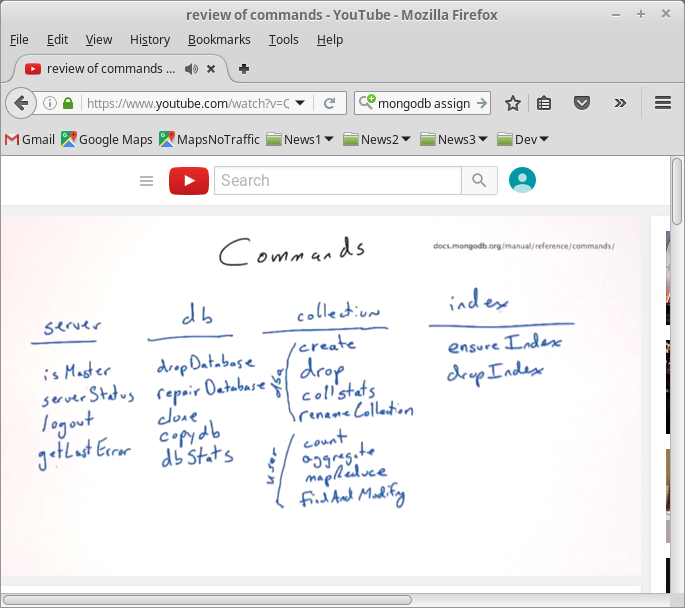 review of commands - YouTube - Mozilla Firefox
File Edit View History Bookmarks Tools Help
review of commands ...
https://www.youtube.com/watch?v=C
mongodb assign
Gmail Google Maps MapsNoTraffic News1 News2 News3 Dev
Search
Commands
docs.mongodb.org/manual/reference/commands/
server
isMaster
serverStatus
logout
getLastError
db
dropDatabase
repairDatabase
clone
copydb
dbStats
collection
create
drop
collstats
renameCollection
count
aggregate
mapReduce
findAndModify
index
ensureIndex
dropIndex